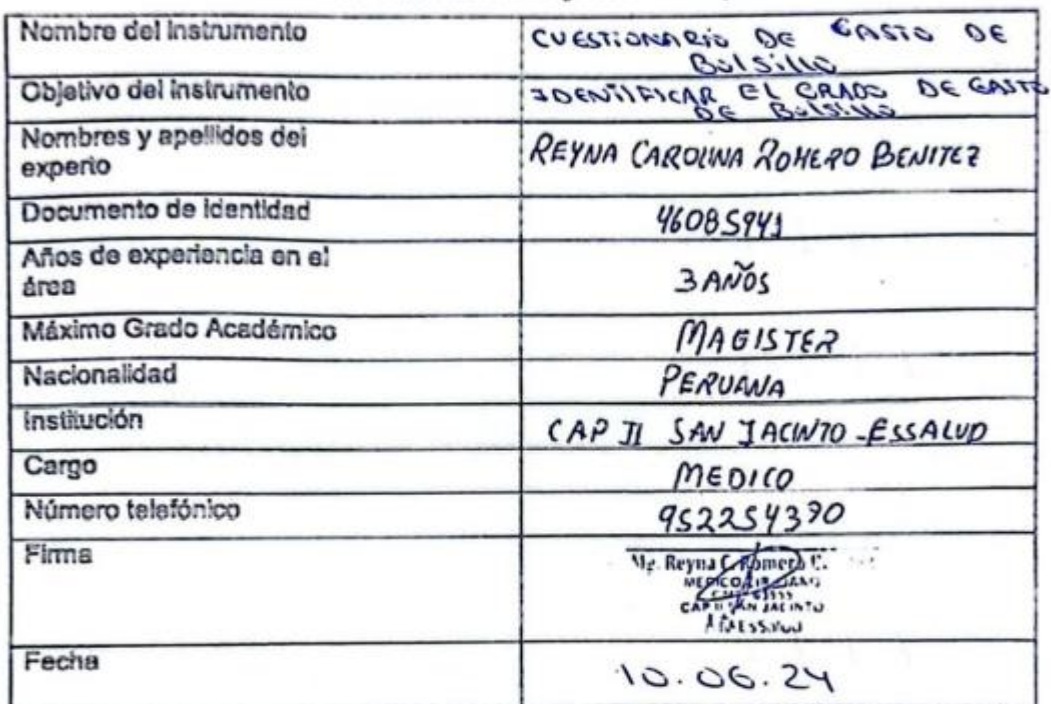 Nombre del instrumento
CUESTIONARIO DE GASTO DE
Bolsillo
Objetivo del instrumento
IDENTIFICAR EL GRADO DE GASTO
DE Bolsillo
Nombres y apellidos del
experto
REYNA CAROLINA ROMERO BENITEZ
Documento de identidad
46085941
Años de experiencia en el
área
3 AÑOS
Máximo Grado Académico
MAGISTER
Nacionalidad
PERUANA
Institución
CAP II SAN JACINTO - ESSALUD
Cargo
MEDICO
Número telefónico
952254390
Firma
Mg. Reyna C. Romero
MEDICO CIRUJANO
CAP II SAN JACINTO
Fecha
10.06.24